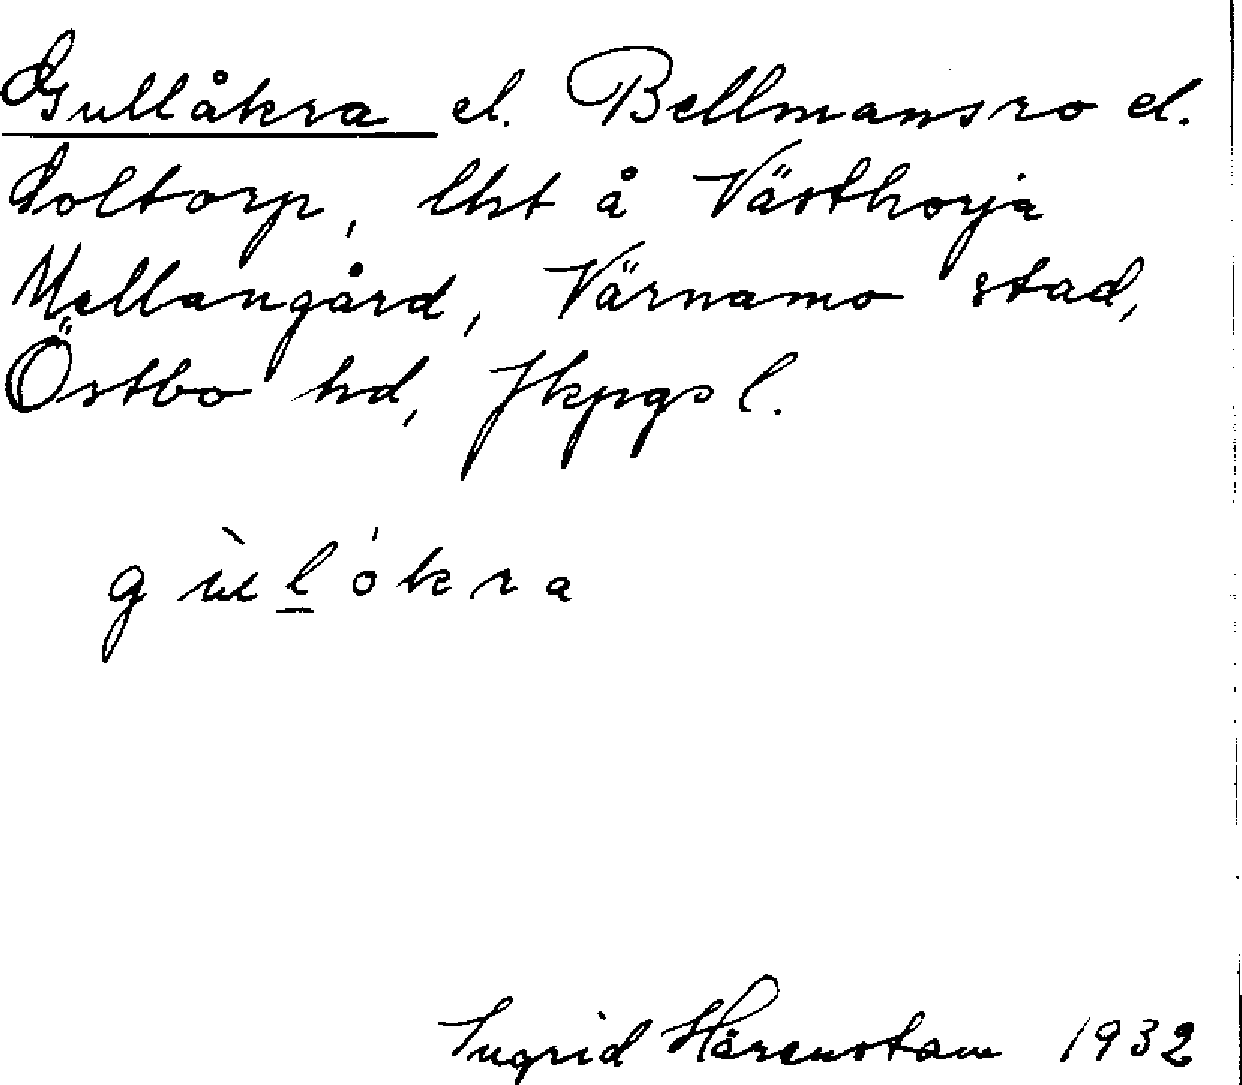 Gullåkra el. Bellmansro el.
Soltorp, lht å Västhorja
Mellangård, Värnamo stad,
Östbo hd, Jkpgs l.
gùlókra
Ingrid Härenstam 1932